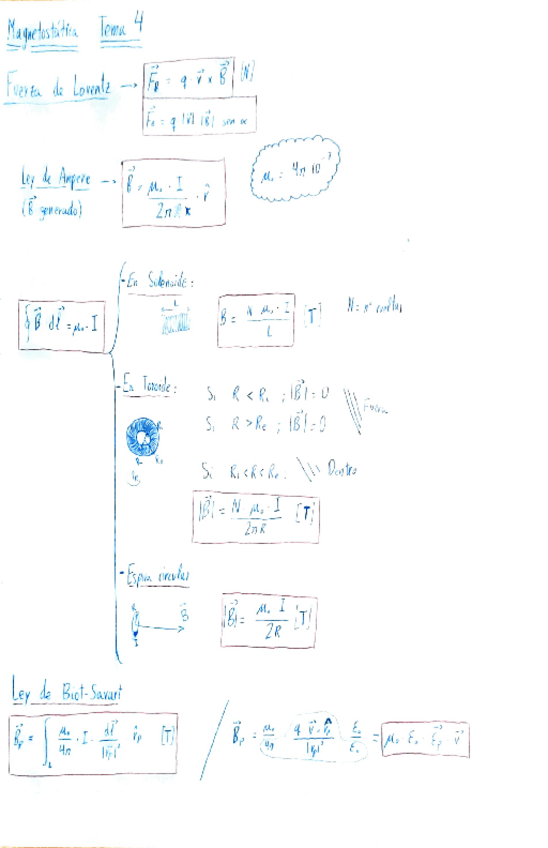 Magnetostática Tema 4
Fuerza de Lorentz → F⃗_B = q v⃗ x B⃗ [N]
F_B = q |v⃗| |B⃗| sen α
Ley de Ampere → B⃗ = μ₀ · I / 2π R · r̂
(B⃗ generado)
μ₀ = 4π 10⁻⁷
∮ B⃗ dl⃗ = μ₀ · I
- En Solenoide:
L
B = N μ₀ · I / L [T]
N = nº vueltas
- En Toroide:
Si R < Rᵢ ; |B⃗| = 0
Si R > Re ; |B⃗| = 0
Fuera
Si Rᵢ < R < Re. Dentro
|B⃗| = N μ₀ · I / 2πR [T]
- Espira circular
B⃗
I
|B⃗| = μ₀ I / 2R [T]
Ley de Biot-Savart
B⃗p = ∫_L μ₀ / 4π · I · dl⃗ / |r⃗p|² r̂p [T]
B⃗p = μ₀ / 4π q v⃗ · r̂p / |r⃗p|² ε₀ / ε₀ = μ₀ · ε₀ · E⃗p · v⃗